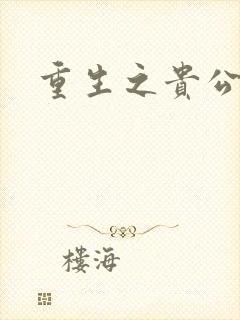 重生之貴公
樓海